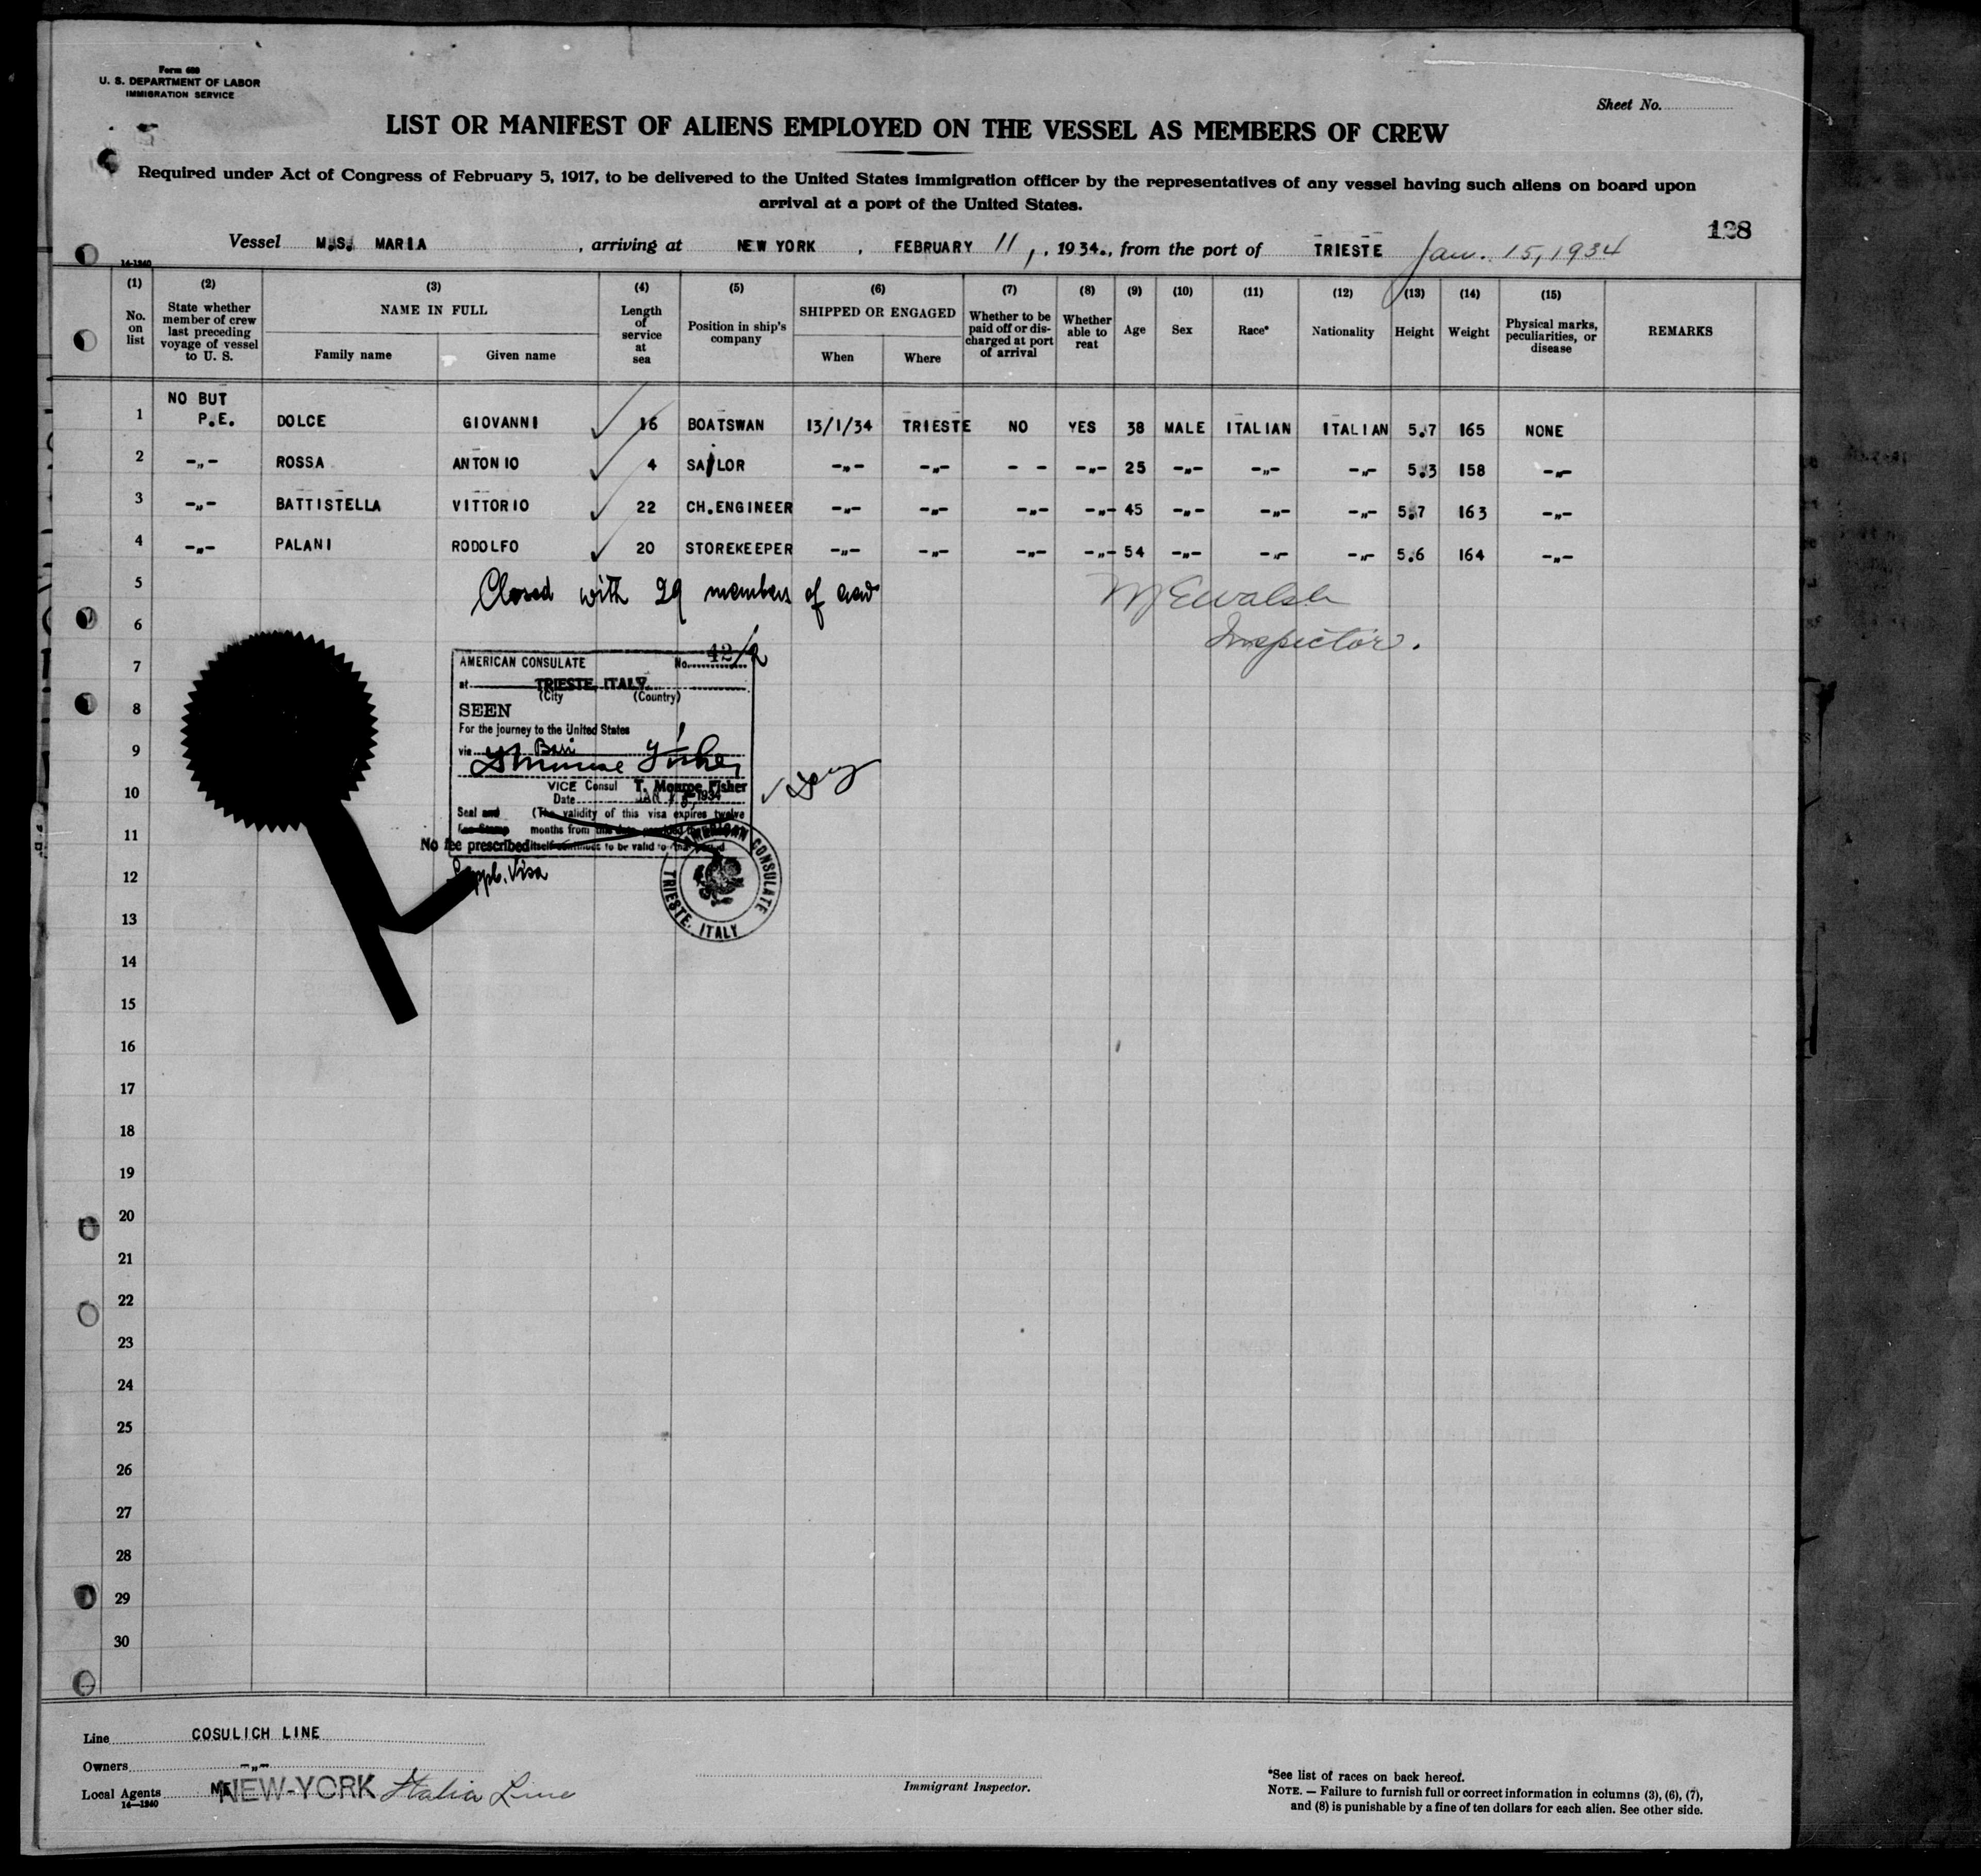 Form 680
U. S. DEPARTMENT OF LABOR
IMMIGRATION SERVICE
Sheet No.
LIST OR MANIFEST OF ALIENS EMPLOYED ON THE VESSEL AS MEMBERS OF CREW
Required under Act of Congress of February 5, 1917, to be delivered to the United States immigration officer by the representatives of any vessel having such aliens on board upon
arrival at a port of the United States.
128
Vessel M.S. MARIA, arriving at NEW YORK, FEBRUARY 11, 1934., from the port of TRIESTE Jan. 15, 1934
14-1240
(1) (2) (3) (4) (5) (6) (7) (8) (9) (10) (11) (12) (13) (14) (15)
No. on list
State whether member of crew last preceding voyage of vessel to U. S.
NAME IN FULL
Family name Given name
Length of service at sea
Position in ship's company
SHIPPED OR ENGAGED
When Where
Whether to be paid off or discharged at port of arrival
Whether able to reat
Age
Sex
Race*
Nationality
Height
Weight
Physical marks, peculiarities, or disease
REMARKS
1 NO BUT P.E. DOLCE GIOVANNI 16 BOATSWAN 13/1/34 TRIESTE NO YES 38 MALE ITALIAN ITALIAN 5.7 165 NONE
2 -„- ROSSA ANTONIO 4 SAILOR -„- -„- - - -„- 25 -„- -„- -„- 5.3 158 -„-
3 -„- BATTISTELLA VITTORIO 22 CH.ENGINEER -„- -„- -„- -„- 45 -„- -„- -„- 5.7 163 -„-
4 -„- PALANI RODOLFO 20 STOREKEEPER -„- -„- -„- -„- 54 -„- -„- -„- 5.6 164 -„-
5
Closed with 29 members of crew
M E Walsh
6
Inspector.
7
AMERICAN CONSULATE No. 42/2
at TRIESTE, ITALY.
(City (Country)
8
SEEN
For the journey to the United States
9
via Bari
T Monroe Fisher
10
VICE Consul T. Monroe Fisher
Date JAN 1934
Seal and (The validity of this visa expires twelve
11
Fee Stamp months from this date provided the
No fee prescribed itself continues to be valid for that period
12
Suppl. Visa
AMERICAN CONSULATE
TRIESTE, ITALY
13
14
15
16
17
18
19
20
21
22
23
24
25
26
27
28
29
30
Line COSULICH LINE
Owners -„-
Local Agents NEW-YORK Italia Line
14-1240
Immigrant Inspector.
*See list of races on back hereof.
NOTE. — Failure to furnish full or correct information in columns (3), (6), (7),
and (8) is punishable by a fine of ten dollars for each alien. See other side.